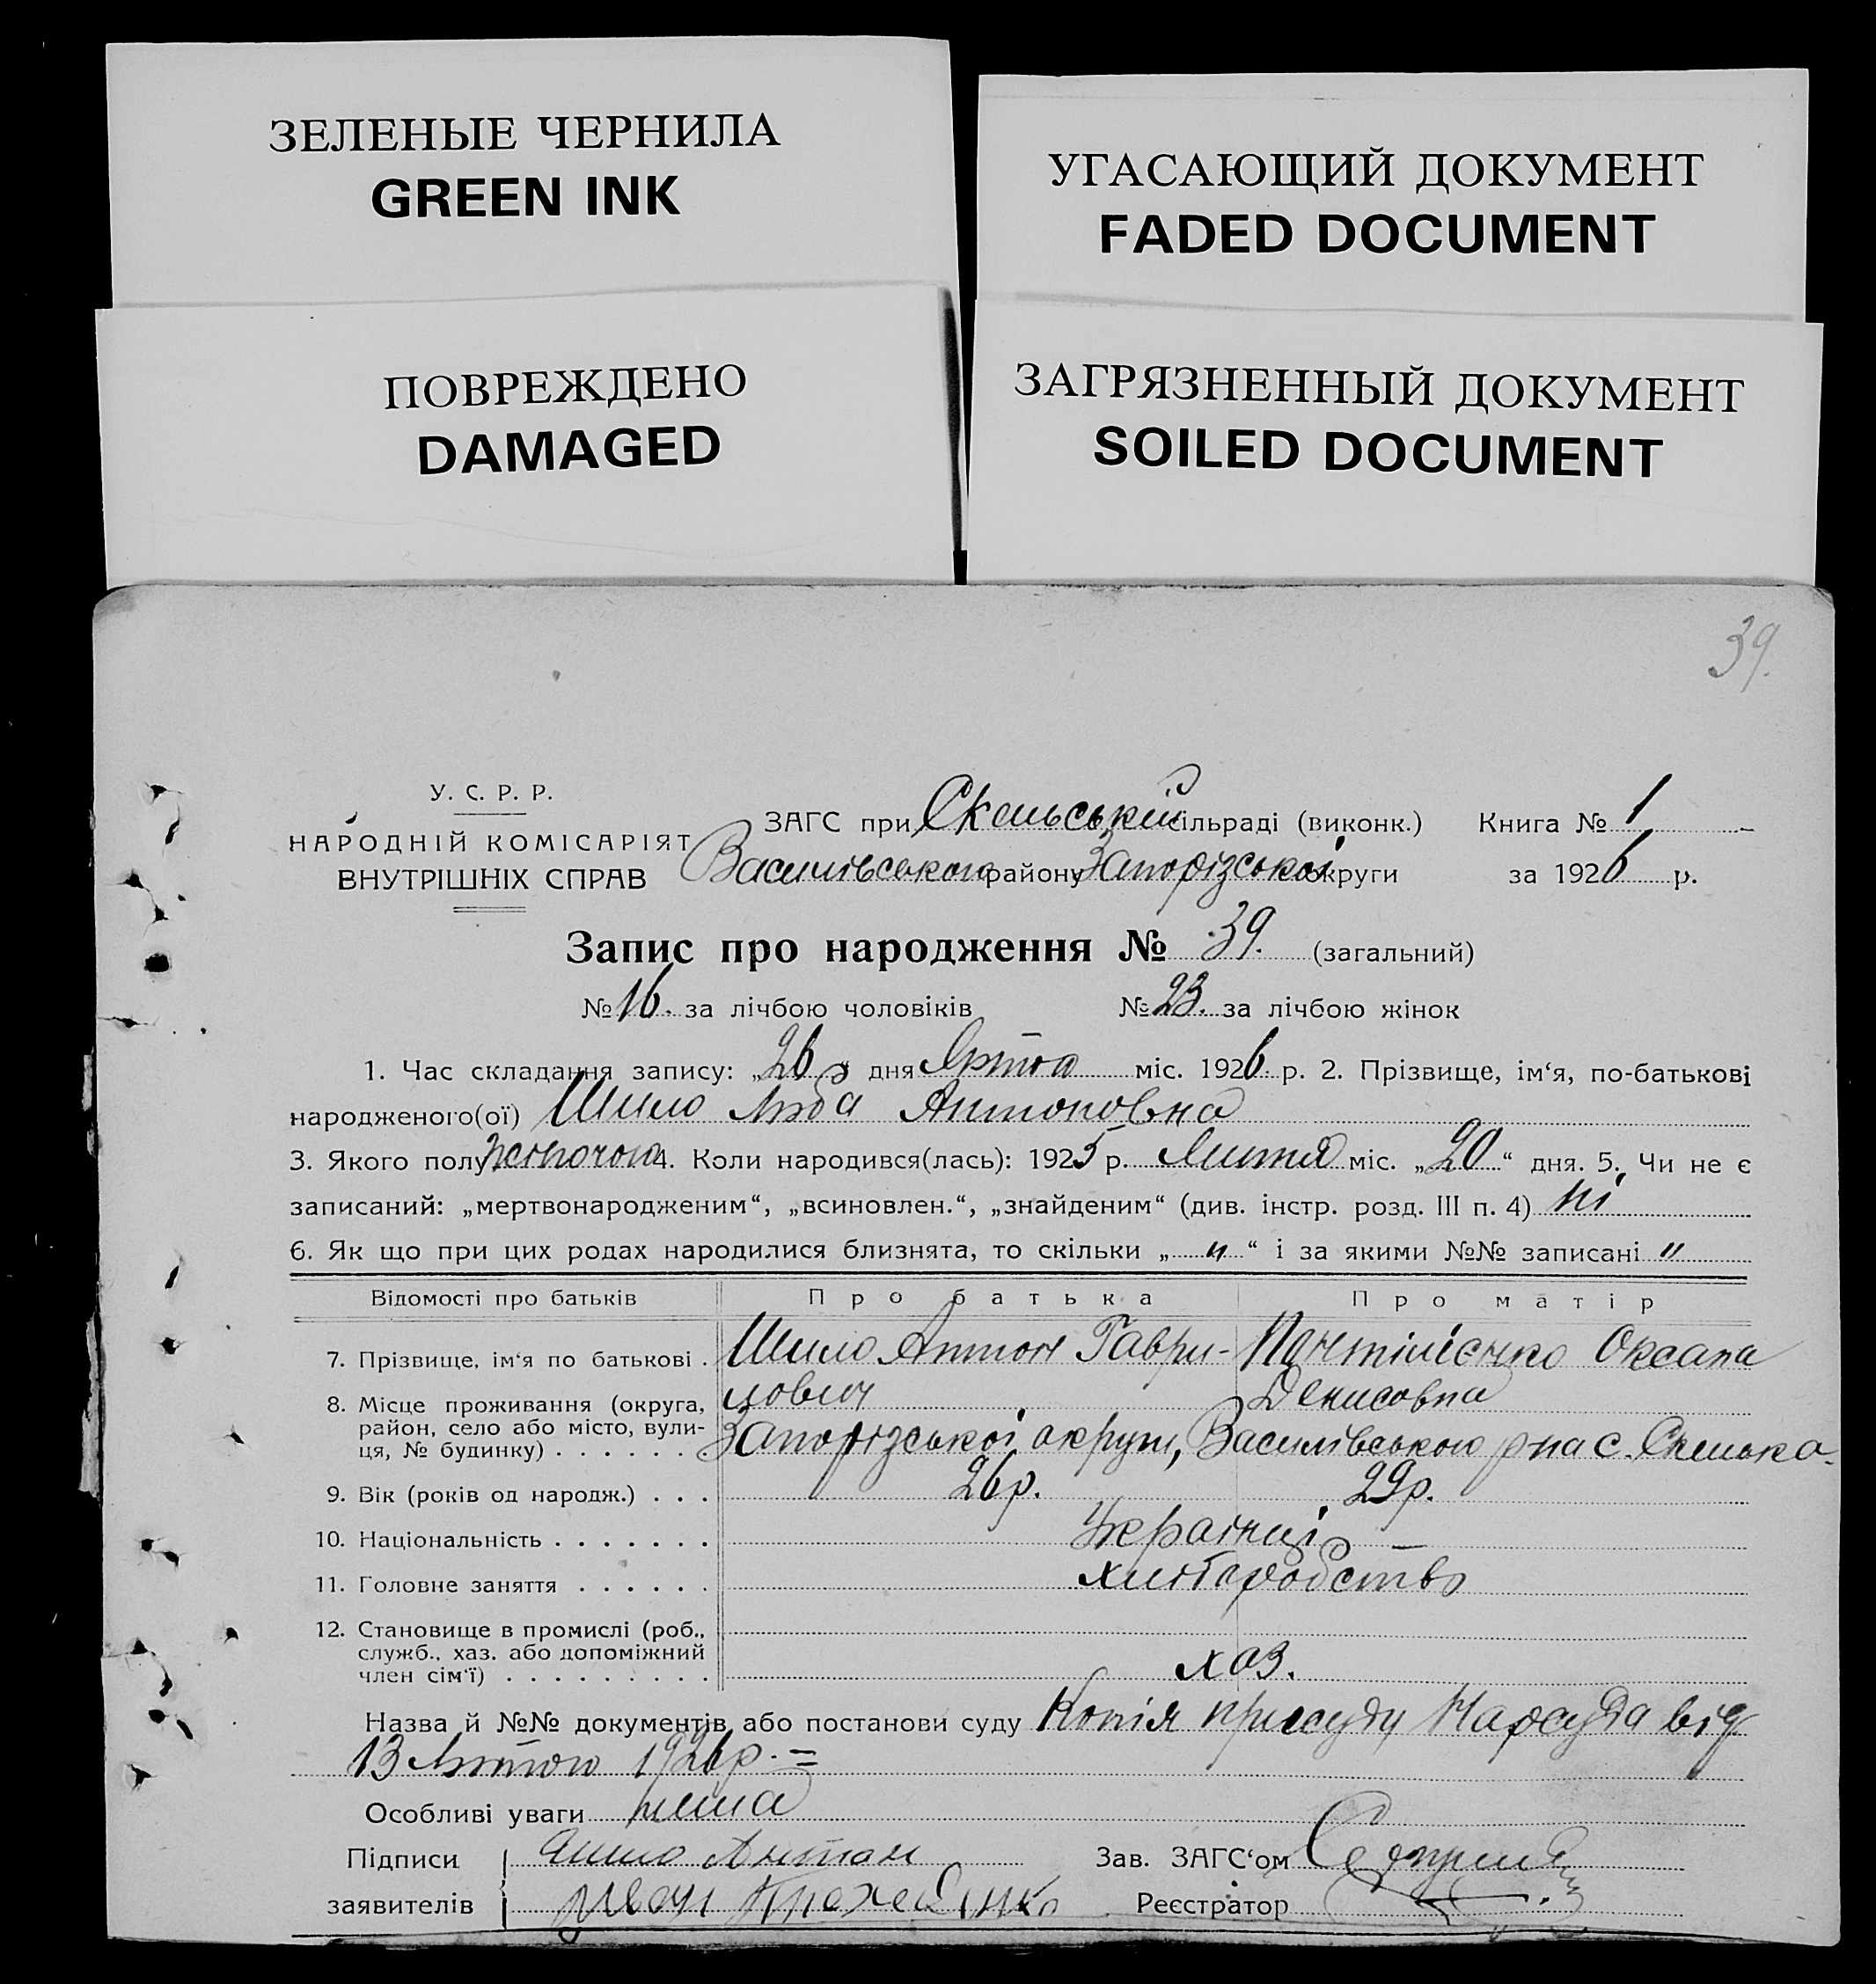 ЗЕЛЕНЫЕ ЧЕРНИЛА
GREEN INK
УГАСАЮЩИЙ ДОКУМЕНТ
FADED DOCUMENT
ПОВРЕЖДЕНО
DAMAGED
ЗАГРЯЗНЕННЫЙ ДОКУМЕНТ
SOILED DOCUMENT
39.
У. С. Р. Р.
НАРОДНІЙ КОМІСАРІЯТ
ВНУТРІШНІХ СПРАВ
ЗАГС при Скельській сільраді (виконк.) Книга № 1
Василівського району Запорізської округи за 1926 р.
Запис про народження № 39. (загальний)
№ 16. за лічбою чоловіків № 23. за лічбою жінок
1. Час складання запису: „26“ дня Лютого міс. 1926 р. 2. Прізвище, ім‘я, по-батькові
народженого(ої) Шило Люба Антоновна
3. Якого полу жіночого 4. Коли народився(лась): 1925 р. Липня міс. „20“ дня. 5. Чи не є
записаний: „мертвонародженим“, „всиновлен.“, „знайденим“ (див. інстр. розд. III п. 4) ні
6. Як що при цих родах народилися близнята, то скільки „ " “ і за якими №№ записані "
Відомості про батьків Про батька Про матір
7. Прізвище, ім‘я по батькові . Шило Антон Гаври- Оксана
лович Денисовна
8. Місце проживання (округа, район, село або місто, вули- ця, № будинку) . . . . . . Запорізської округи, Василівського р-на с. Скелька.
9. Вік (років од народж.) . . . 26 р. 29 р.
10. Національність . . . . . . . Українці
11. Головне заняття . . . . . . хліборобство
12. Становище в промислі (роб., служб., хаз. або допоміжний член сім‘ї) . . . . . . . . . хаз.
Назва й №№ документів або постанови суду Копія присуду Нарсуда від
13 Лютого 1926 р. =
Особливі уваги нема
Підписи Шило Антон Зав. ЗАГС‘ом
заявителів Іван Реєстратор